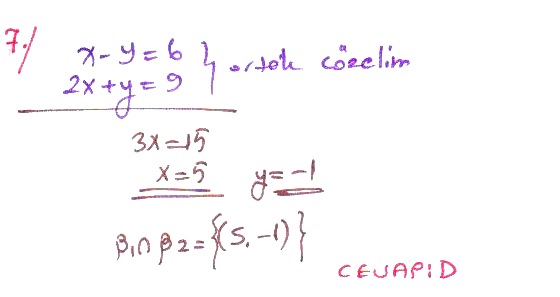 7./
x-y=6
2x+y=9 } ortak çözelim
3x=15
x=5 y=-1
β₁∩β₂={(5,-1)}
CEVAP:D